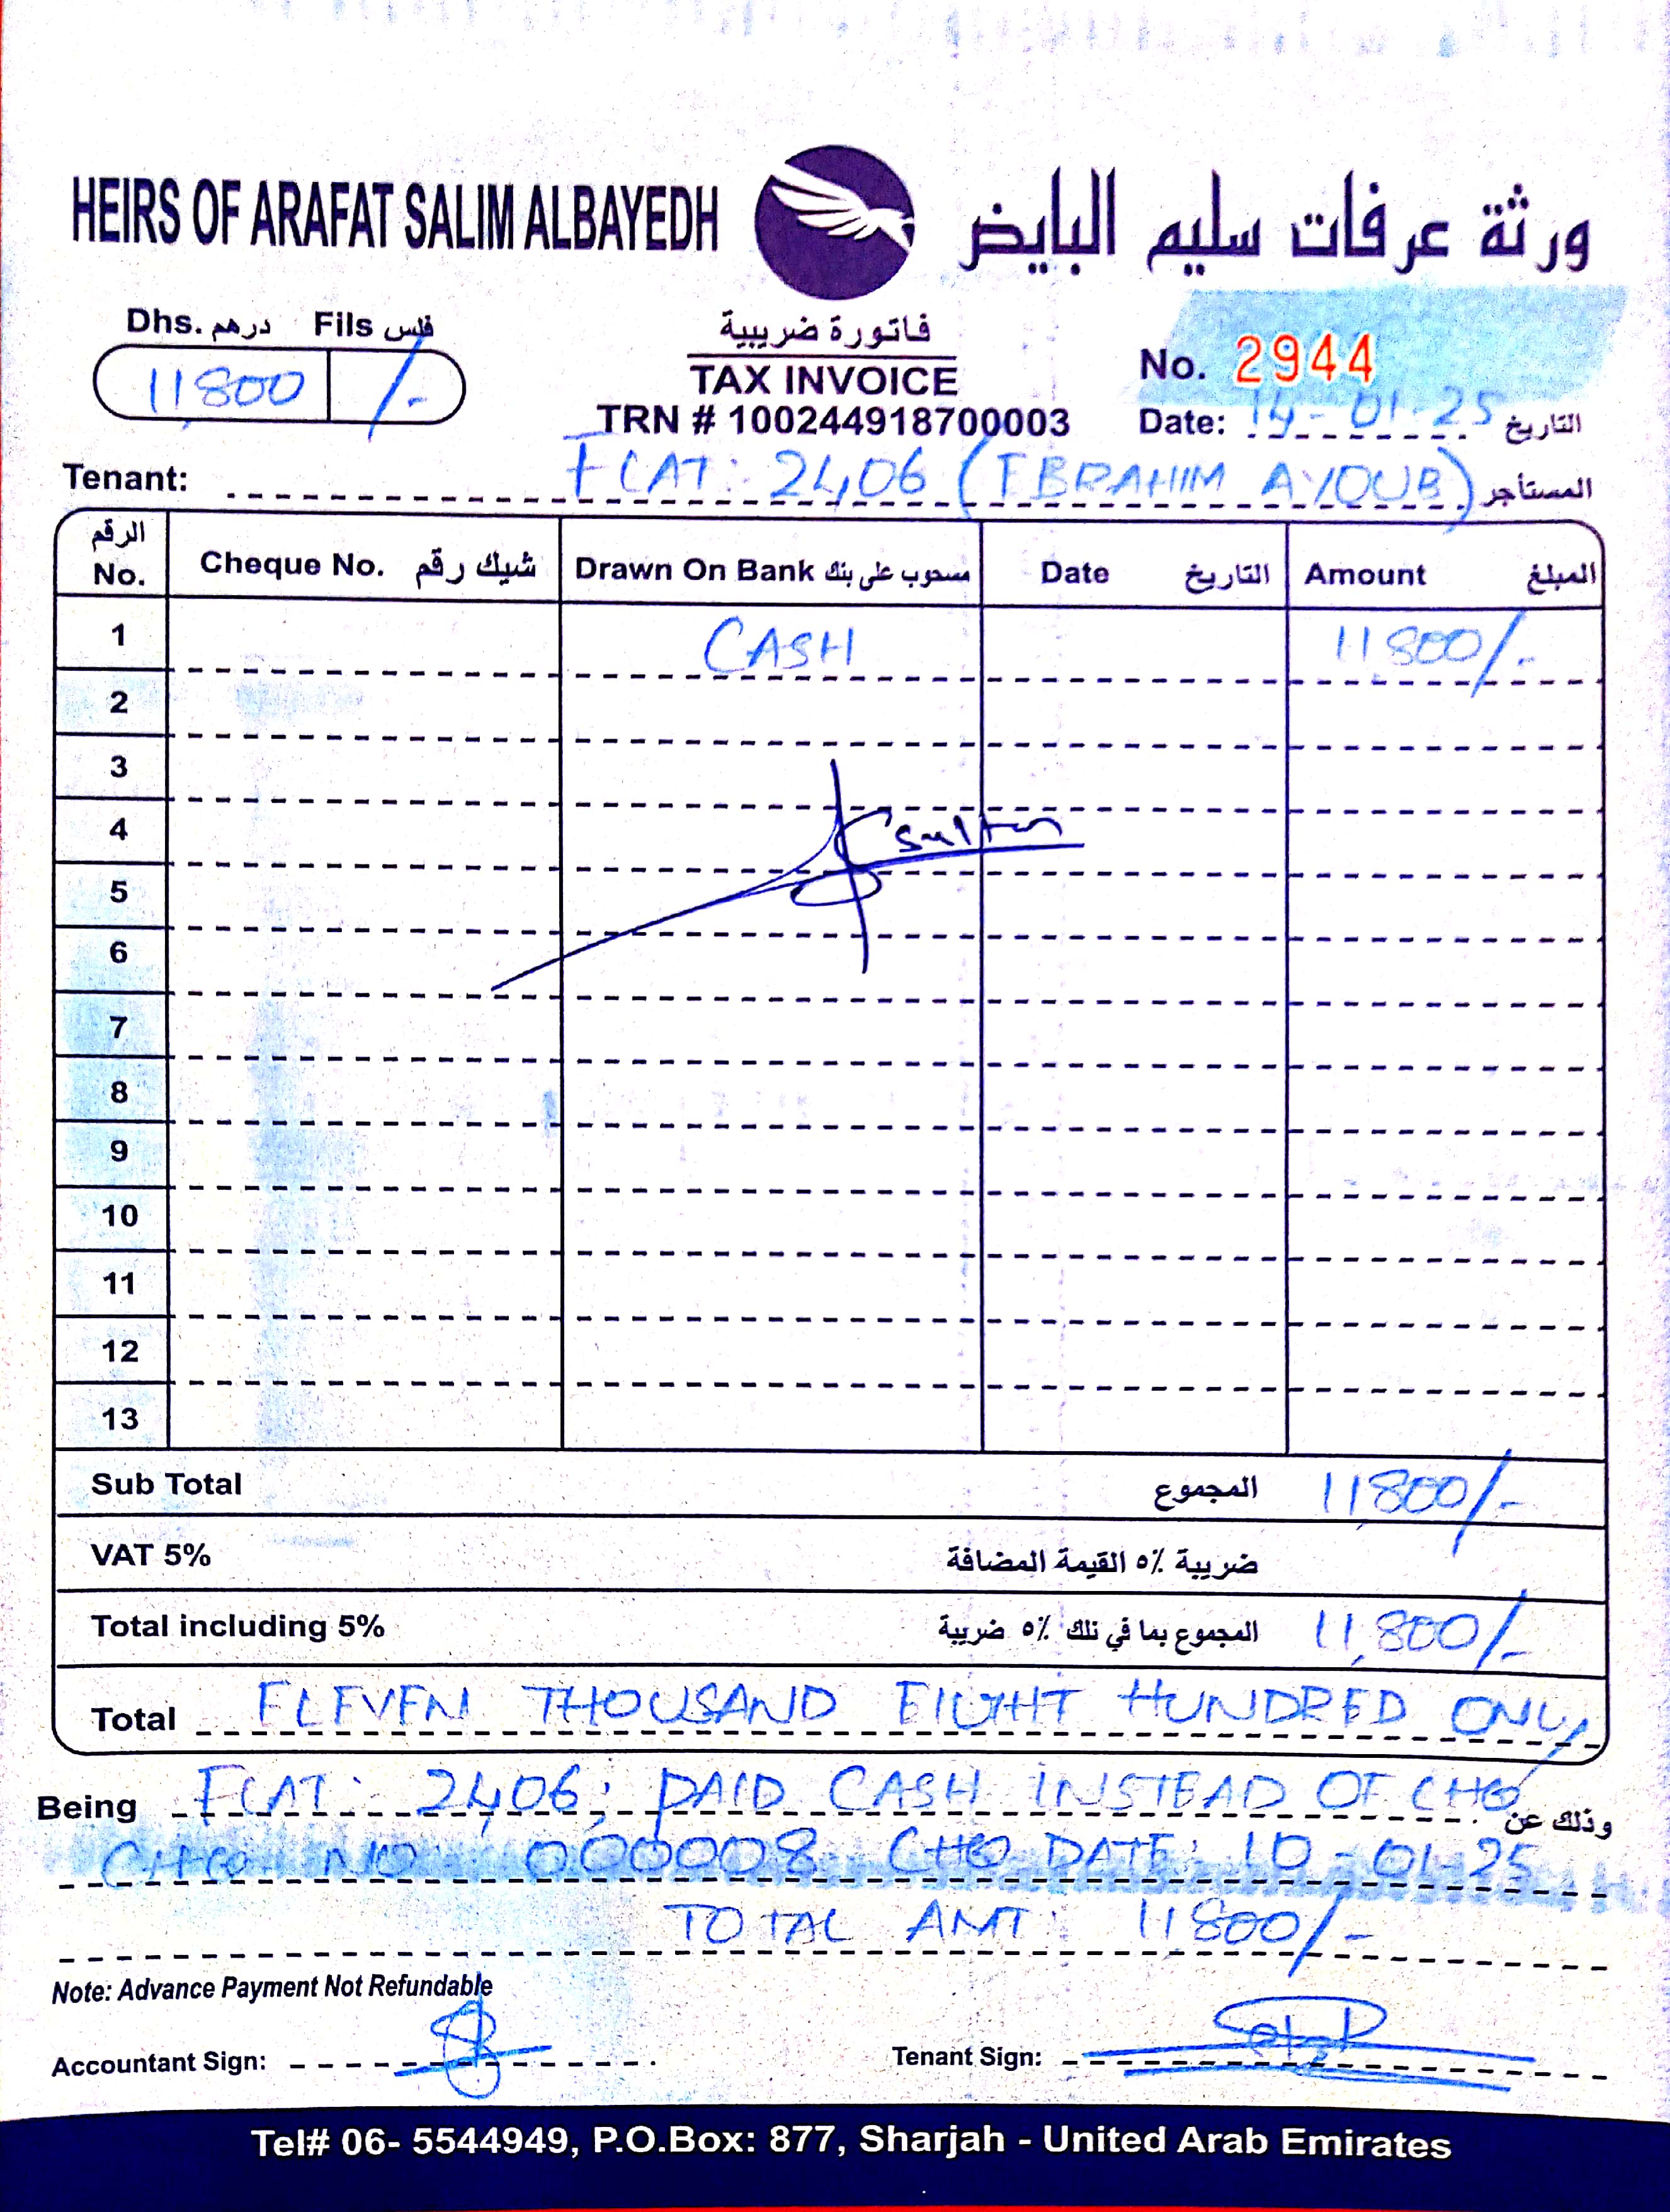 HEIRS OF ARAFAT SALIM ALBAYEDH
ورثة عرفات سليم البايض
Dhs. درهم Fils فلس
11,800 /-
فاتورة ضريبية
TAX INVOICE
TRN # 100244918700003
No. 2944
Date: 14-01-25 التاريخ
Tenant: FLAT: 2406 (IBRAHIM AYOUB) المستأجر
الرقم No. Cheque No. شيك رقم Drawn On Bank مسحوب على بنك Date التاريخ Amount المبلغ
1 CASH 11,800/-
2
3
4 Sultan
5
6
7
8
9
10
11
12
13
Sub Total المجموع 11,800/-
VAT 5% ضريبة ٥٪ القيمة المضافة
Total including 5% المجموع بما في ذلك ٥٪ ضريبة 11,800/-
Total ELEVEN THOUSAND EIGHT HUNDRED ONLY
Being FLAT: 2406; PAID CASH INSTEAD OF CHQ وذلك عن
CHQ NO: 000008 CHQ DATE: 10-01-25
TOTAL AMT: 11800/-
Note: Advance Payment Not Refundable
Accountant Sign: Tenant Sign:
Tel# 06- 5544949, P.O.Box: 877, Sharjah - United Arab Emirates